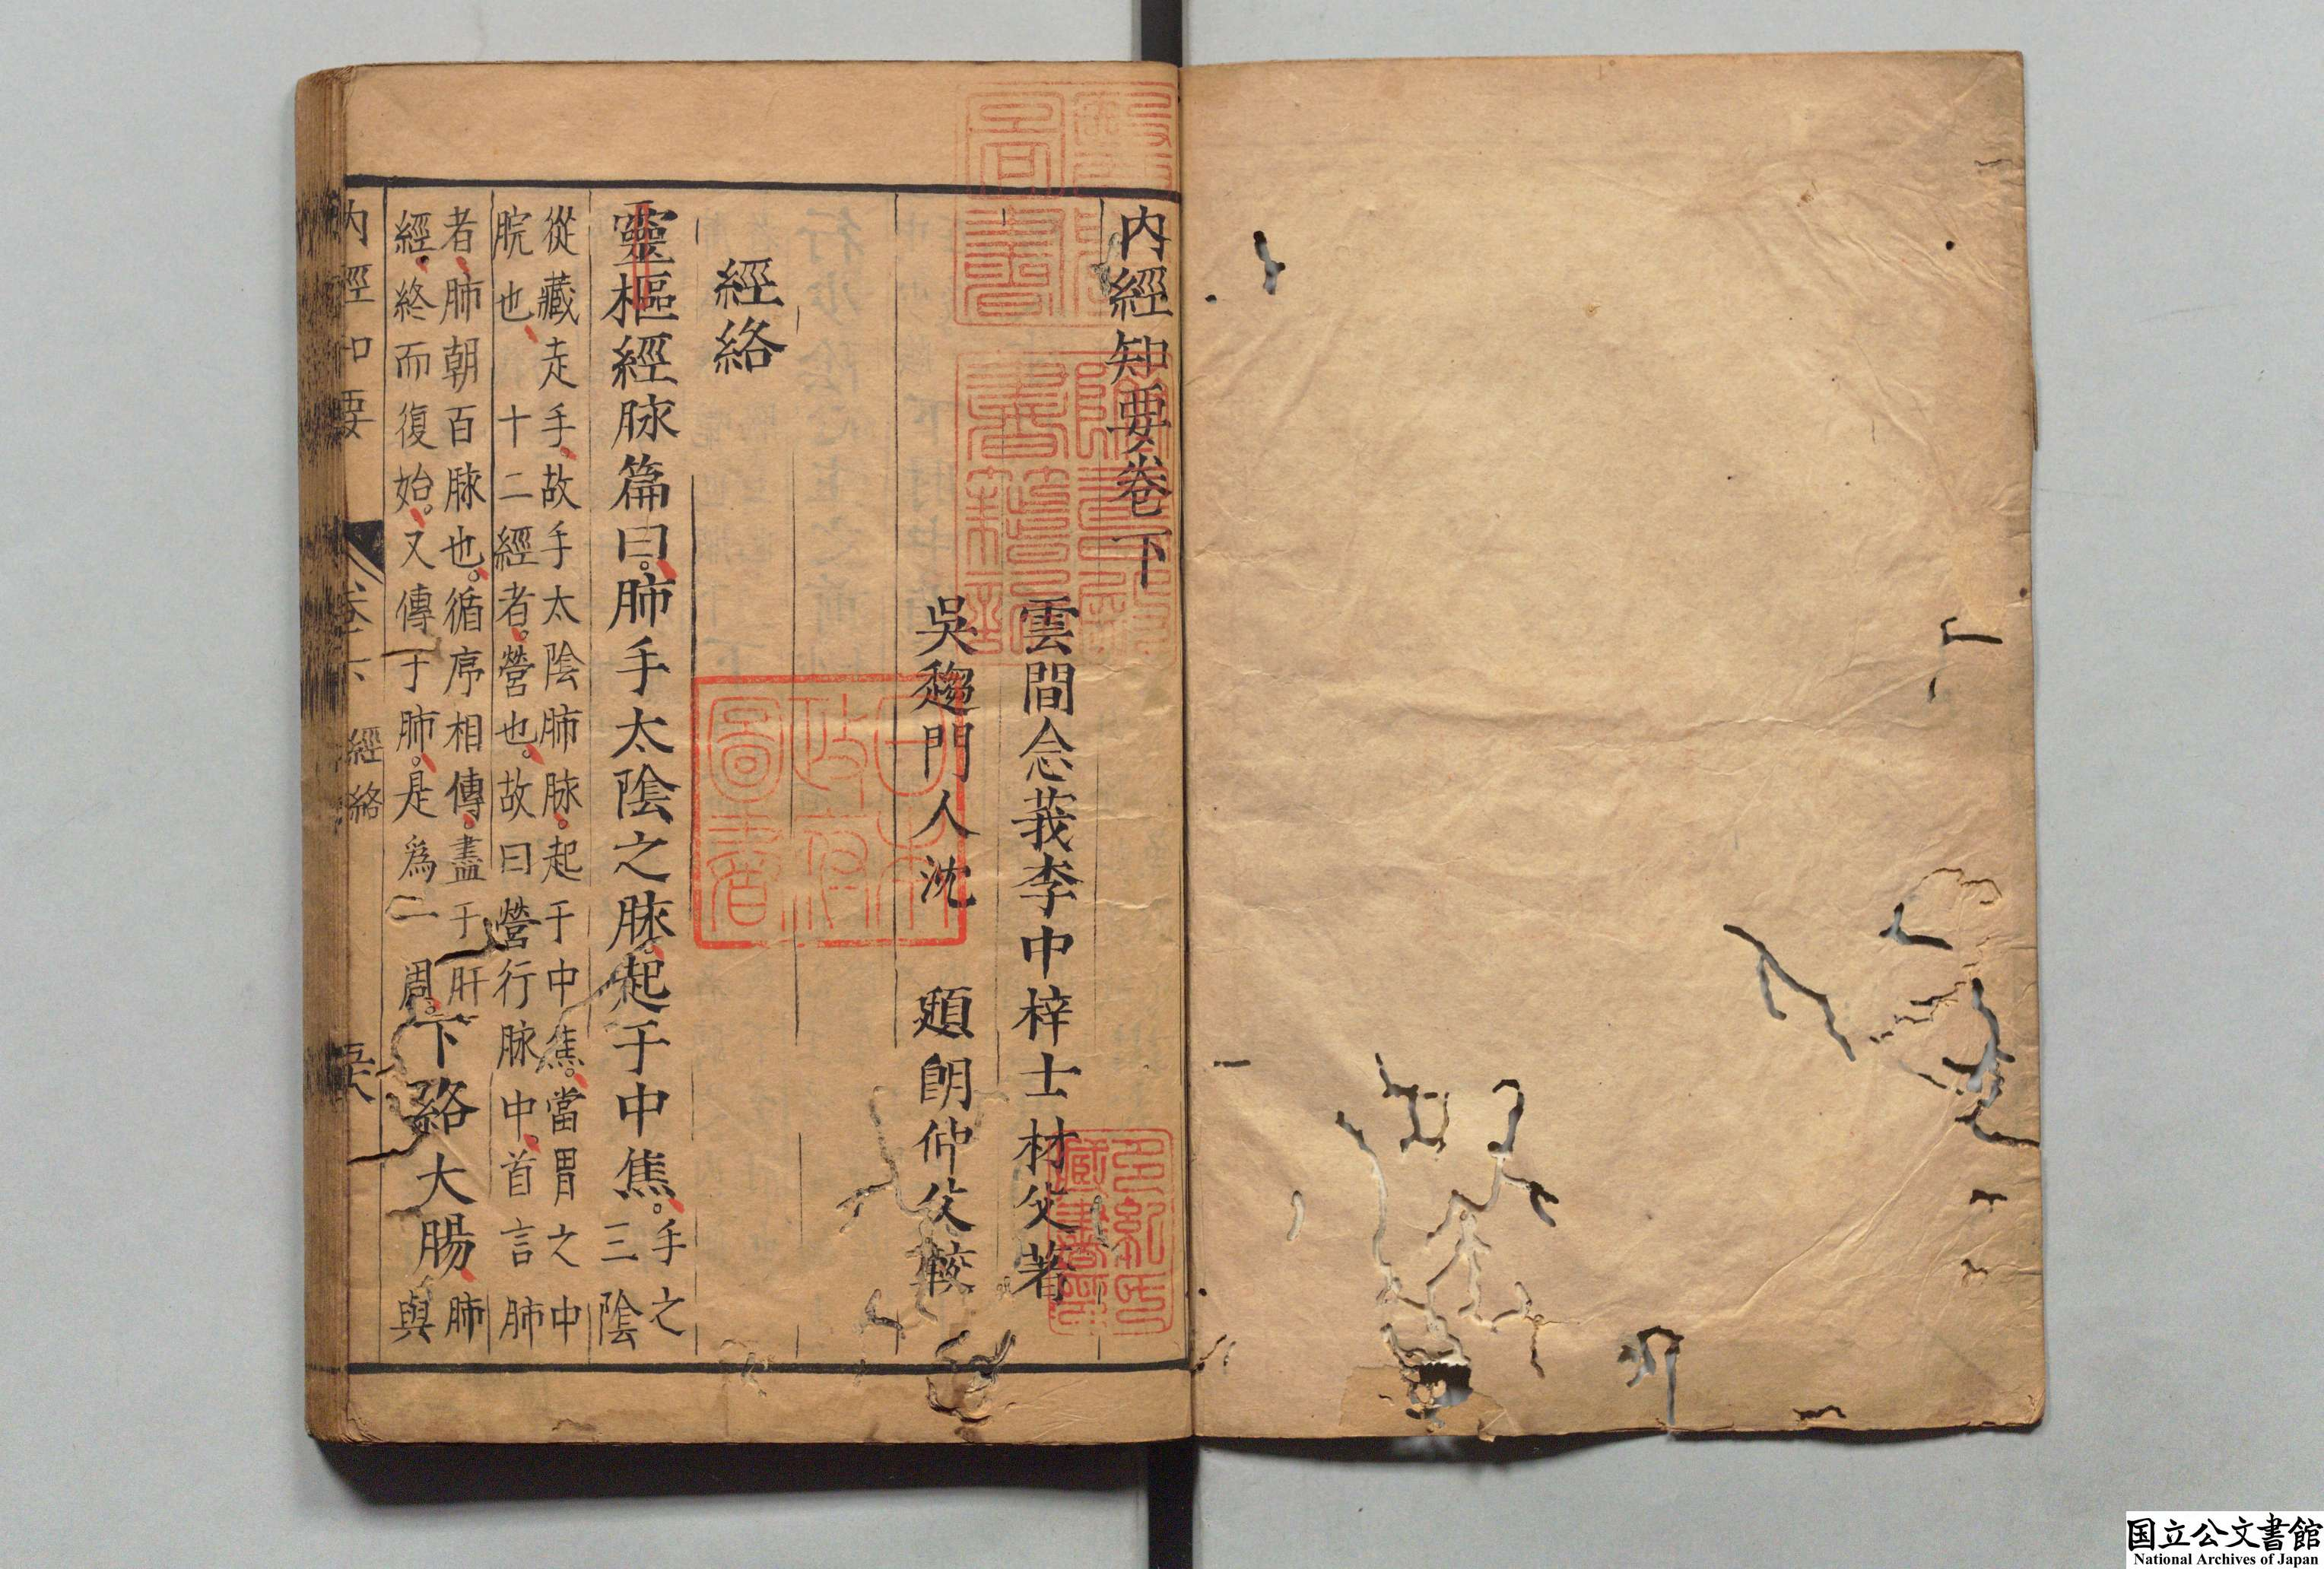 內經知要卷下
雲間念莪李中梓士材父著
吳趨門人沈 頲朗仲父較
經絡
靈樞經脉篇曰。肺手太陰之脉。起于中焦。手之三陰
從藏走手。故手太陰肺脉。起于中焦。當胃之中
脘也。十二經者。營也。故曰營行脉中。首言肺
者。肺朝百脉也。循序相傳。盡于肝
經。終而復始。又傳于肺。是爲一周。下絡大腸肺與
經絡
日本政府圖書
多紀氏藏書印
国立公文書館
National Archives of Japan